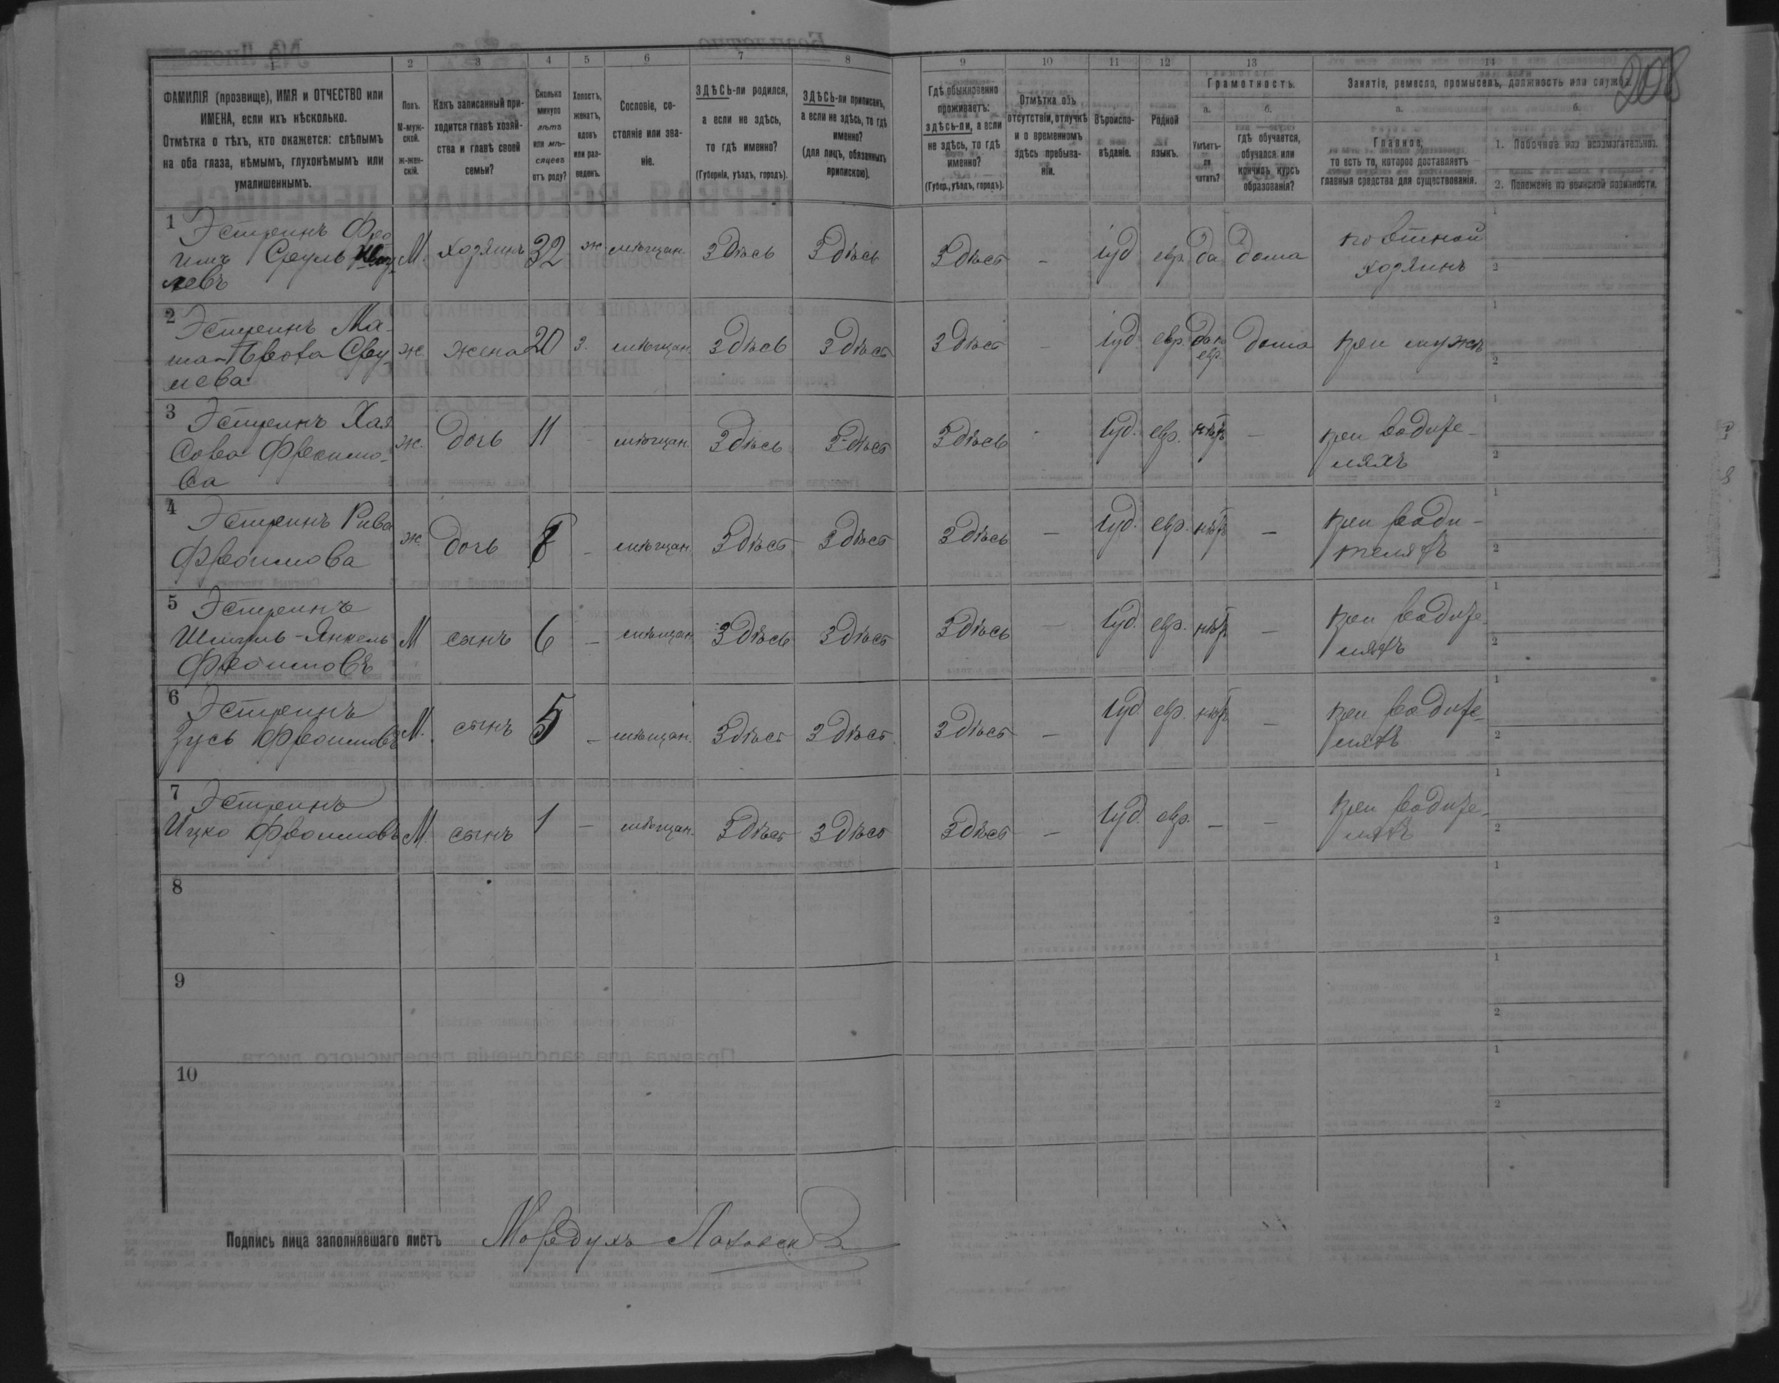 208
1 2 3 4 5 6 7 8 9 10 11 12 13 14
ФАМИЛІЯ (прозвище), ИМЯ и ОТЧЕСТВО или
ИМЕНА, если ихъ нѣсколько.
Отмѣтка о тѣхъ, кто окажется: слѣпымъ
на оба глаза, нѣмымъ, глухонѣмымъ или
умалишеннымъ.
Полъ.
М-муж-
ской.
ж-жен-
скій.
Какъ записанный при-
ходится главѣ хозяй-
ства и главѣ своей
семьи?
Сколько
минуло
лѣтъ
или мѣ-
сяцевъ
отъ роду?
Холостъ,
женатъ,
вдовъ
или раз-
веденъ.
Сословіе, со-
стояніе или зва-
ніе.
ЗДѢСЬ-ли родился,
а если не здѣсь,
то гдѣ именно?
(Губернія, уѣздъ, городъ).
ЗДѢСЬ-ли приписанъ,
а если не здѣсь, то гдѣ
именно?
(для лицъ, обязанныхъ
припискою).
Гдѣ обыкновенно
проживаетъ:
здѣсь-ли, а если
не здѣсь, то гдѣ
именно?
(Губер., уѣздъ, городъ).
Отмѣтка объ
отсутствіи, отлучкѣ
и о временномъ
здѣсь пребыва-
ніи.
Вѣроиспо-
вѣданіе.
Родной
языкъ.
Грамотность.
а.
Умѣетъ-
ли
читать?
б.
гдѣ обучается,
обучался или
кончилъ курсъ
образованія?
Занятіе, ремесло, промыселъ, должность или служба.
а.
Главное,
то есть то, которое доставляетъ
главныя средства для существованія.
б.
1. Побочное или вспомогательное.
2. Положеніе по воинской повинности.
1 Эстринъ Фро
имъ Сруль
левъ М. хозяинъ 32 ж мѣщан. Здѣсь Здѣсь Здѣсь - іуд евр да дома
хозяинъ
2 Эстринъ Ма-
ша- Сру
лева ж. жена 20 з. мѣщан. Здѣсь Здѣсь Здѣсь - іуд. евр. дома при мужѣ
3 Эстринъ Хая
Сова Фроимо-
ва ж. дочь 11 - мѣщан. Здѣсь Здѣсь Здѣсь - іуд. евр. нѣтъ - при родите-
ляхъ
4 Эстринъ Рива
Фроимова ж. дочь 8 - мѣщан. Здѣсь Здѣсь Здѣсь - іуд. евр. нѣтъ - при роди-
теляхъ
5 Эстринъ
Шмуль-Янкель
Фроимовъ М сынъ 6 - мѣщан Здѣсь Здѣсь Здѣсь - іуд. евр. нѣтъ - при родите-
ляхъ
6 Эстринъ
Зусь Фроимовъ М. сынъ 5 - мѣщан. Здѣсь Здѣсь Здѣсь - іуд. евр. нѣтъ - при родите-
ляхъ
7 Эстринъ
Ицко Фроимовъ М. сынъ 1 - мѣщан. Здѣсь Здѣсь Здѣсь - іуд. евр. - - при родите-
ляхъ
8
9
10
Подпись лица заполнявшаго листъ Мордухъ